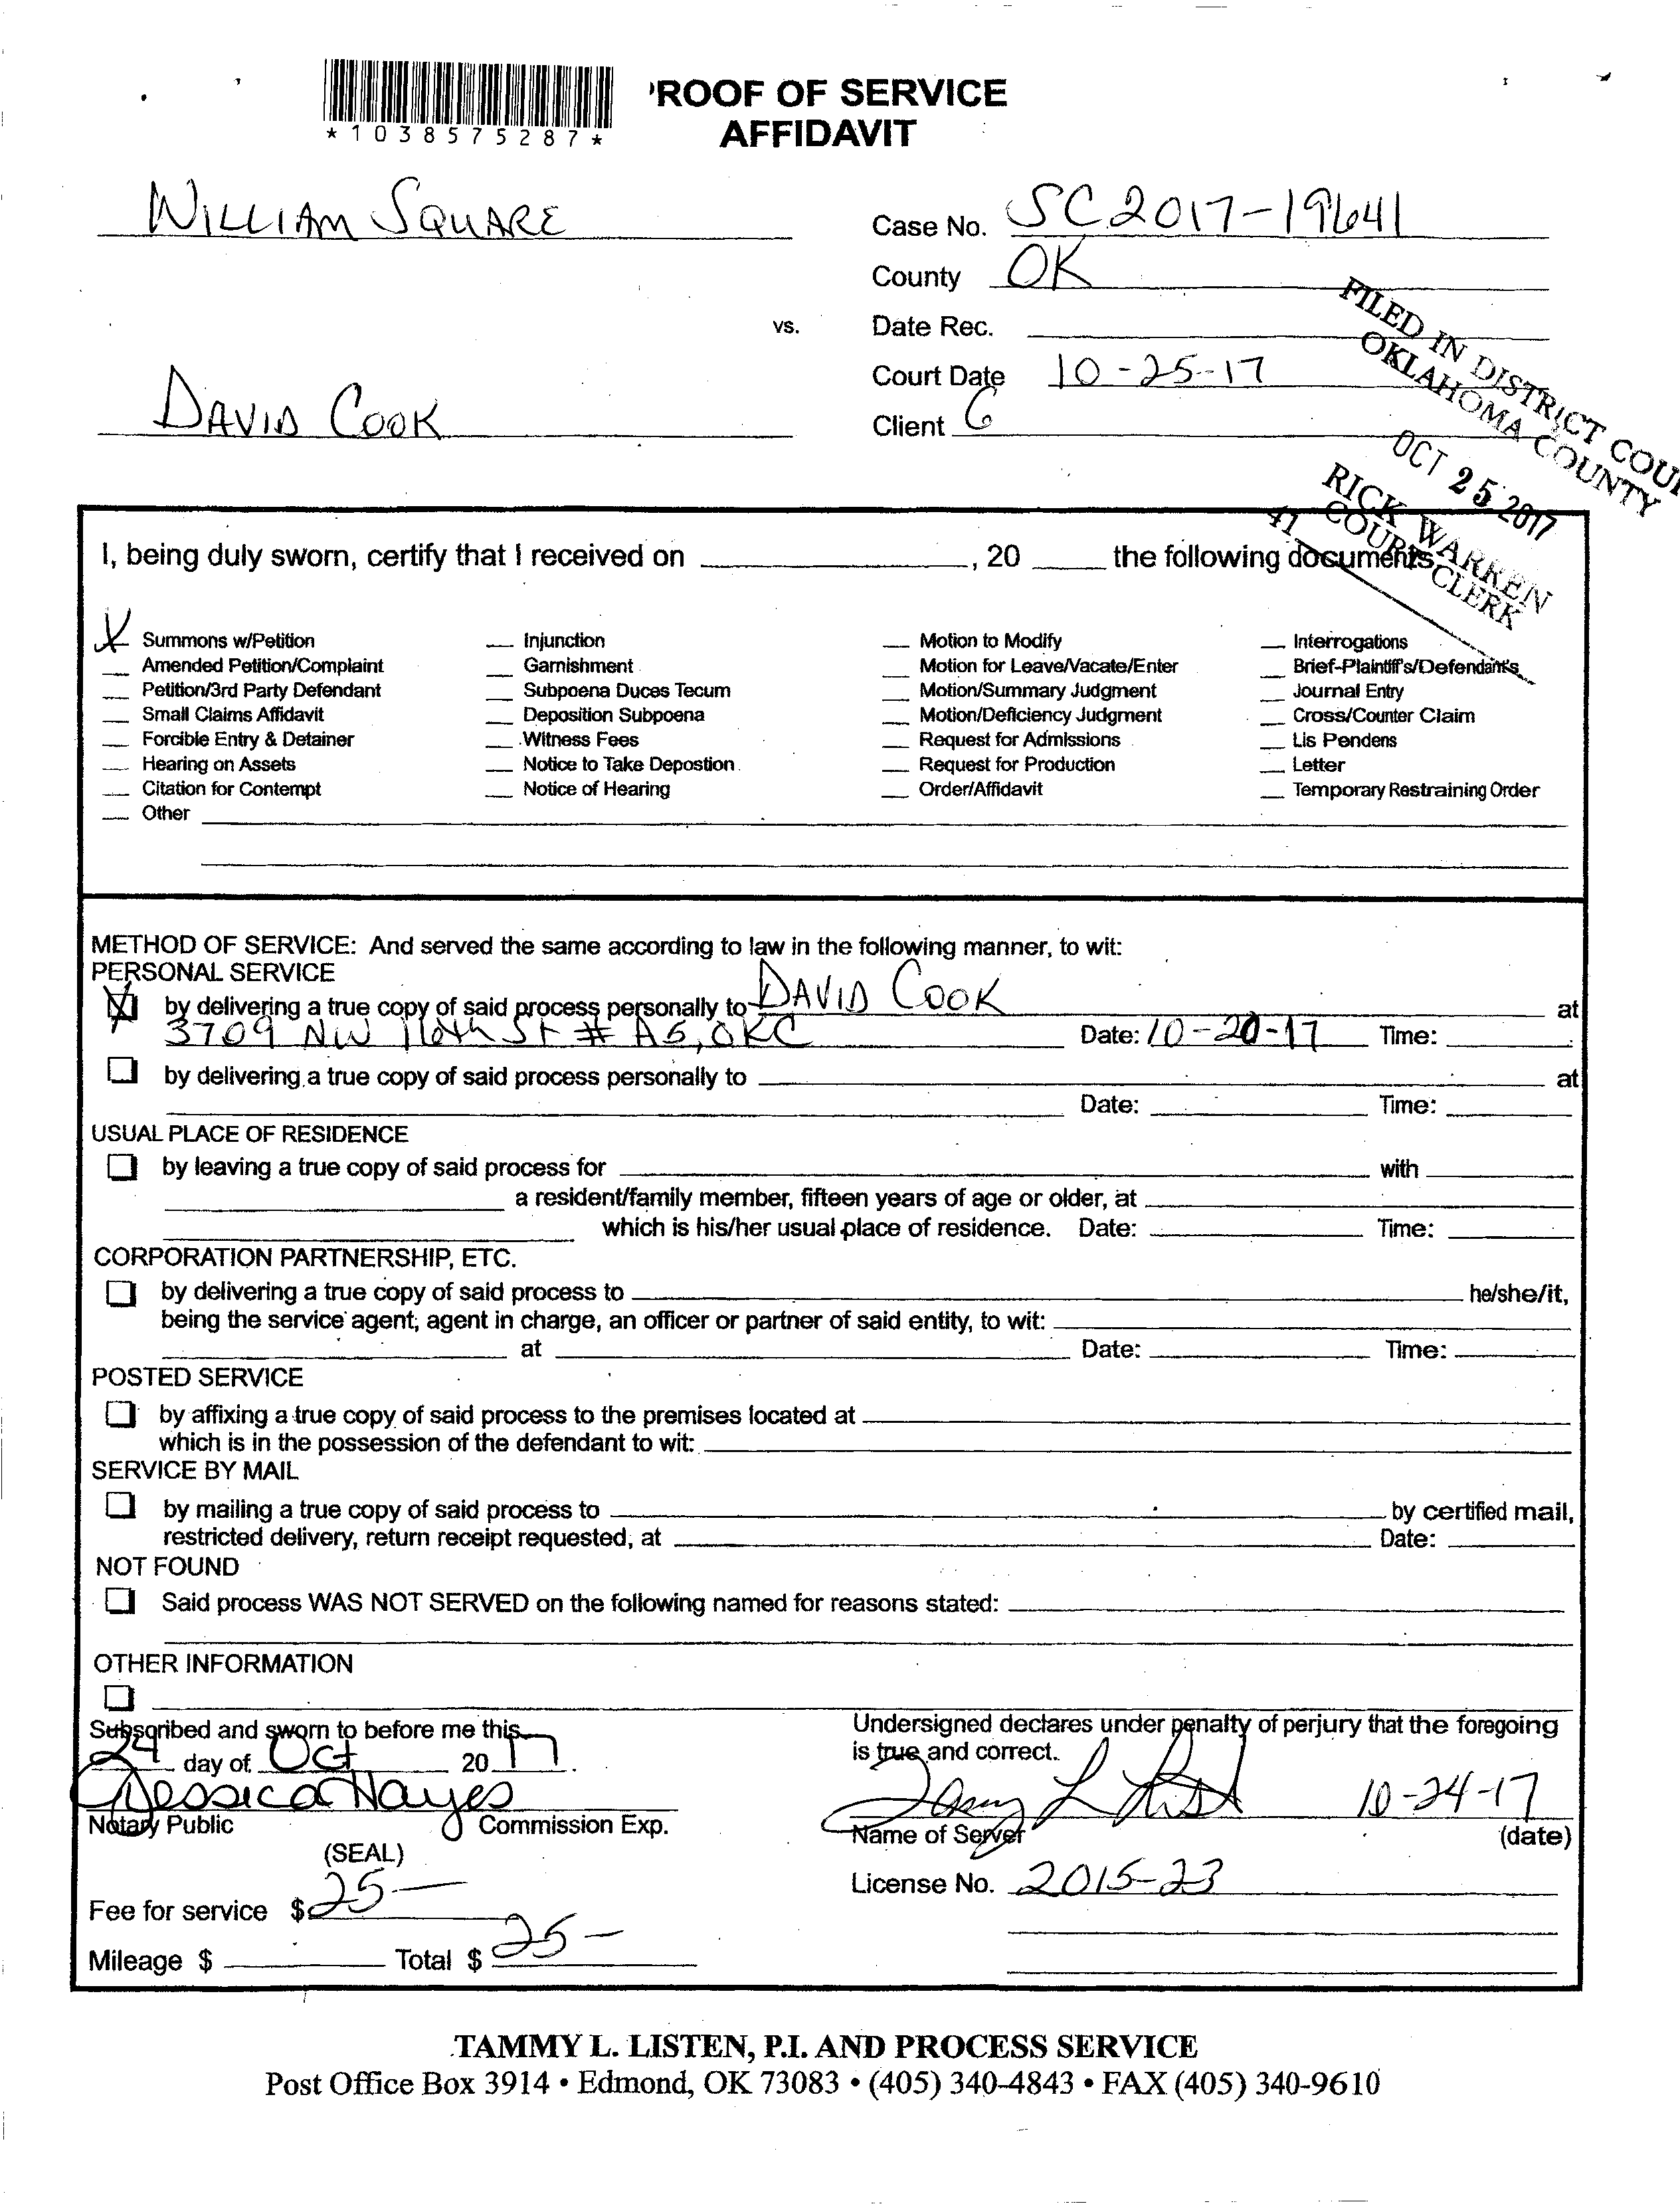 *1038575287*
ROOF OF SERVICE
AFFIDAVIT
WILLIAM SQUARE
Case No. SC2017-19641
County OK
vs.
Date Rec.
Court Date 10-25-17
DAVID COOK
Client
FILED IN DISTRICT COU
OKLAHOMA COUNTY
OCT 25 2017
RICK WARREN
COURT CLERK
41
I, being duly sworn, certify that I received on ____, 20 ____ the following documents
X Summons w/Petition
Amended Petition/Complaint
Petition/3rd Party Defendant
Small Claims Affidavit
Forcible Entry & Detainer
Hearing on Assets
Citation for Contempt
Other
Injunction
Garnishment
Subpoena Duces Tecum
Deposition Subpoena
Witness Fees
Notice to Take Depostion
Notice of Hearing
Motion to Modify
Motion for Leave/Vacate/Enter
Motion/Summary Judgment
Motion/Deficiency Judgment
Request for Admissions
Request for Production
Order/Affidavit
Interrogations
Brief-Plaintiff's/Defendant's
Journal Entry
Cross/Counter Claim
Lis Pendens
Letter
Temporary Restraining Order
METHOD OF SERVICE: And served the same according to law in the following manner, to wit:
PERSONAL SERVICE
X by delivering a true copy of said process personally to DAVID COOK at
3709 NW 16th St # A5, OKC Date: 10-20-17 Time:
by delivering a true copy of said process personally to ____ at
Date: ____ Time:
USUAL PLACE OF RESIDENCE
by leaving a true copy of said process for ____ with
a resident/family member, fifteen years of age or older, at
which is his/her usual place of residence. Date: ____ Time:
CORPORATION PARTNERSHIP, ETC.
by delivering a true copy of said process to ____ he/she/it,
being the service agent, agent in charge, an officer or partner of said entity, to wit:
at ____ Date: ____ Time:
POSTED SERVICE
by affixing a true copy of said process to the premises located at
which is in the possession of the defendant to wit:
SERVICE BY MAIL
by mailing a true copy of said process to ____ by certified mail,
restricted delivery, return receipt requested, at ____ Date:
NOT FOUND
Said process WAS NOT SERVED on the following named for reasons stated:
OTHER INFORMATION
Subscribed and sworn to before me this
24 day of Oct 2017.
Jessica Hayes
Notary Public Commission Exp.
(SEAL)
Fee for service $ 25-
Mileage $ ____ Total $ 25-
Undersigned declares under penalty of perjury that the foregoing
is true and correct.
10-24-17
Name of Server (date)
License No. 2015-23
TAMMY L. LISTEN, P.I. AND PROCESS SERVICE
Post Office Box 3914 • Edmond, OK 73083 • (405) 340-4843 • FAX (405) 340-9610